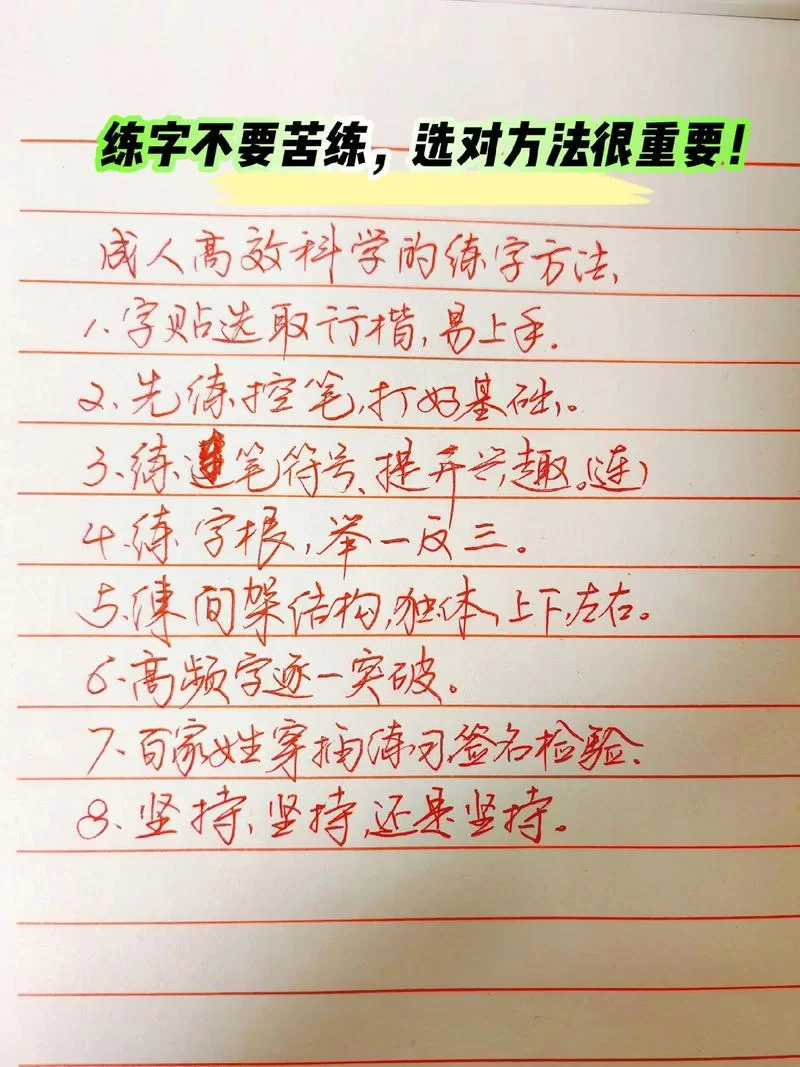 练字不要苦练，选对方法很重要！
成人高效科学的练字方法、
1、字贴选取行楷，易上手.
2、先练控笔，打好基础。
3、练笔符号、提升兴趣。(连)
4、练字根，举一反三。
5、练间架结构，独体，上下，左右。
6、高频字逐一突破。
7、百家姓穿插练习，签名检验.
8、坚持、坚持，还是坚持。